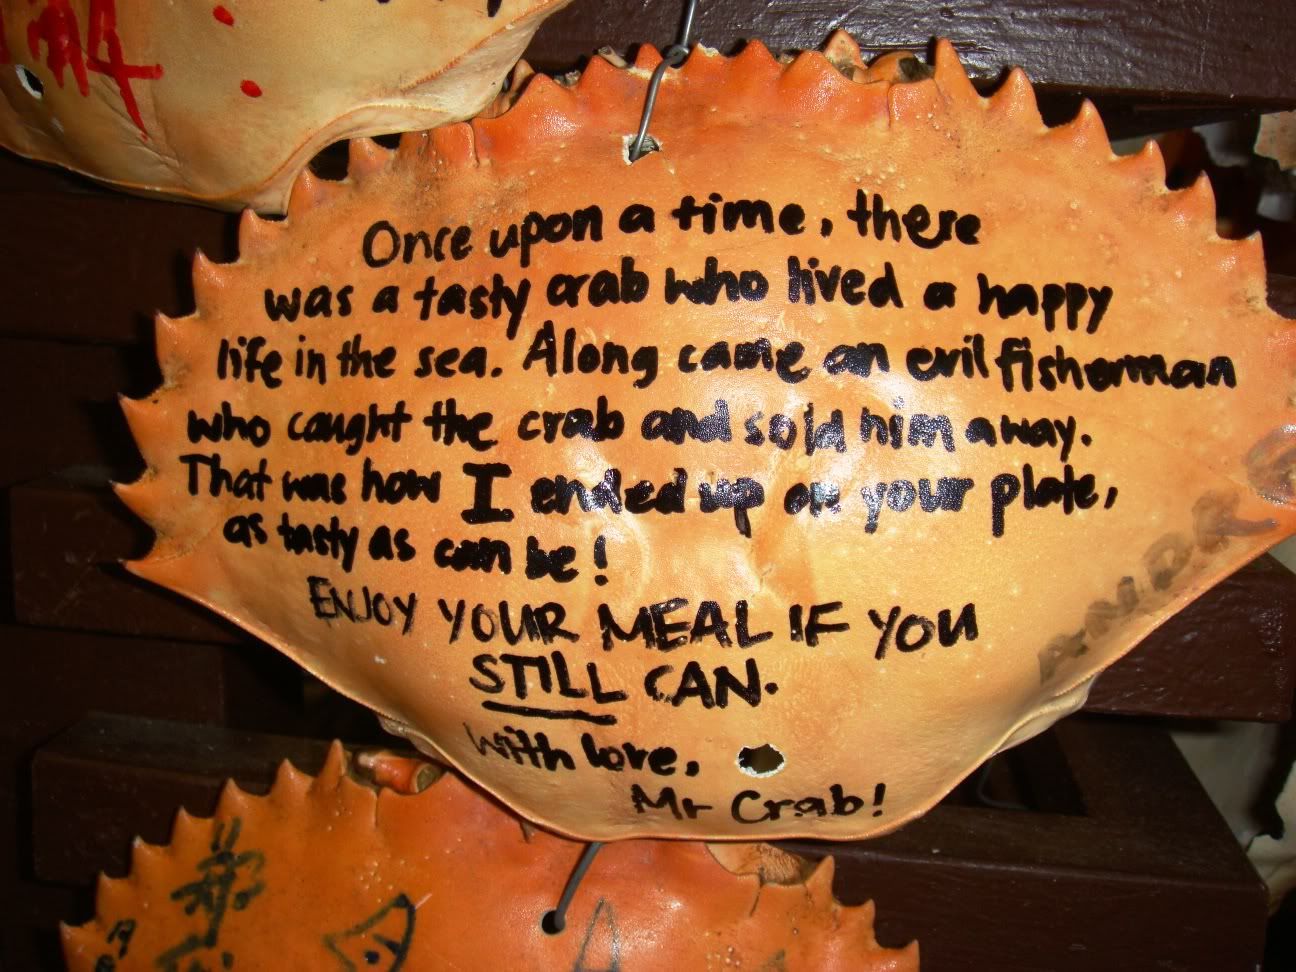 Once upon a time, there
was a tasty crab who lived a happy
life in the sea. Along came an evil fisherman
who caught the crab and sold him away.
That was how I ended up on your plate,
as tasty as can be!
ENJOY YOUR MEAL IF YOU
STILL CAN.
With love,
Mr Crab!